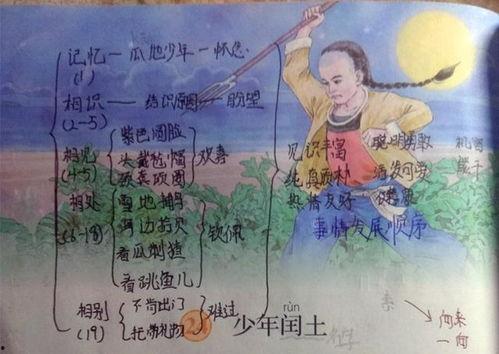 记忆—瓜地少年—怀念
(1)
相识——结识原因—盼望
(2-5)
相见
(4-5)
紫色圆脸
头戴毡帽
颈套项圈
欢喜
相处
(6-18)
雪地捕鸟
海边拾贝
看瓜刺猹
看跳鱼儿
钦佩
相别
(19)
不肯出门
托带礼物
难过
见识丰富 聪明勇敢 机智
纯真质朴 活泼可爱 能干
热情友好
事情发展顺序
rùn
少年闰土
一向